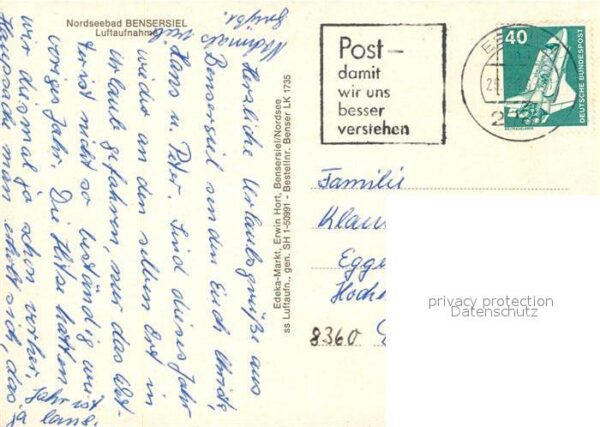 Nordseebad BENSERSIEL
Luftaufnahme
Herzliche Urlaubsgrüße aus
Bensersiel senden Euch
Hans u. Peter. Sind dieses Jahr
wieder an den selben Ort in
Urlaub gefahren, nur das Wet-
ter ist nicht so beständig wie
voriges Jahr. Die Hitze hatten
wir diesmal ja schon vorher,
Hauptsache man erholt sich, das
Jahr ist
ja lang.
Nochmals viele
Grüße.
Edeka-Markt, Erwin Hort, Bensersiel/Nordsee
ss Luftaufn., gen. SH 1-50991 - Bestellnr. Benser LK 1735
Post –
damit
wir uns
besser
verstehen
40
DEUTSCHE BUNDESPOST
Familie
Klau
Egge
Hoch
8360
privacy protection
Datenschutz